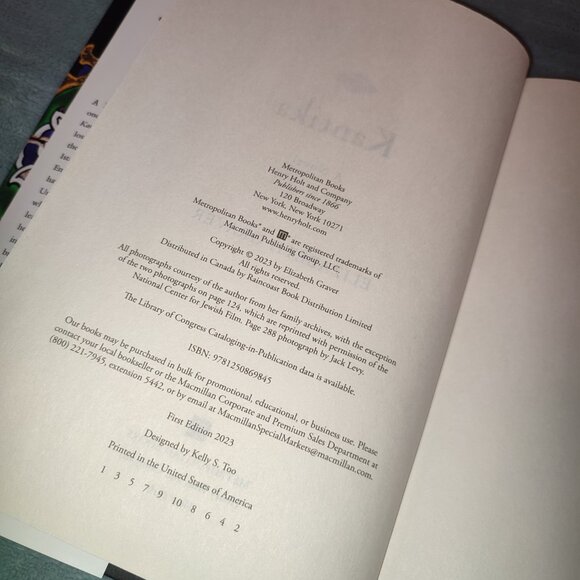 Metropolitan Books
Henry Holt and Company
Publishers since 1866
120 Broadway
New York, New York 10271
www.henryholt.com
Metropolitan Books® and m® are registered trademarks of
Macmillan Publishing Group, LLC.
Copyright © 2023 by Elizabeth Graver
All rights reserved.
Distributed in Canada by Raincoast Book Distribution Limited
All photographs courtesy of the author from her family archives, with the exception
of the two photographs on page 124, which are reprinted with permission of the
National Center for Jewish Film. Page 288 photograph by Jack Levy.
The Library of Congress Cataloging-in-Publication data is available.
ISBN: 9781250869845
Our books may be purchased in bulk for promotional, educational, or business use. Please
contact your local bookseller or the Macmillan Corporate and Premium Sales Department at
(800) 221-7945, extension 5442, or by email at MacmillanSpecialMarkets@macmillan.com.
First Edition 2023
Designed by Kelly S. Too
Printed in the United States of America
1 3 5 7 9 10 8 6 4 2